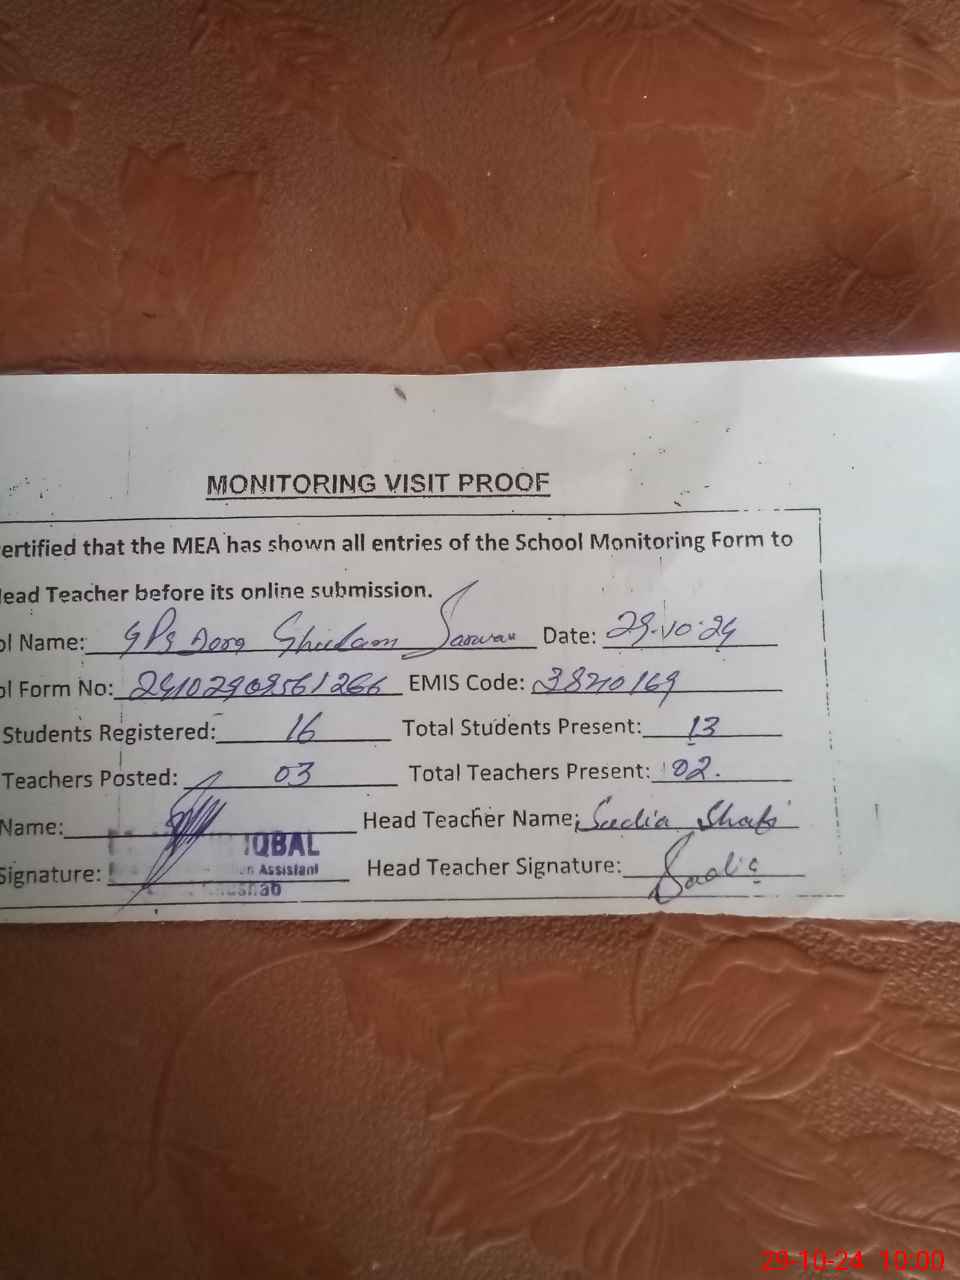 MONITORING VISIT PROOF
ertified that the MEA has shown all entries of the School Monitoring Form to
lead Teacher before its online submission.
ol Name: GPS Dora Ghulam Sarwar Date: 29-10-24
ol Form No: EMIS Code: 38210169
Students Registered: 16 Total Students Present: 13
Teachers Posted: 03 Total Teachers Present: 02.
Name: Head Teacher Name: Sadia Shafi
IQBAL
Signature: Assistant Head Teacher Signature: Sadia
29-10-24 10:00